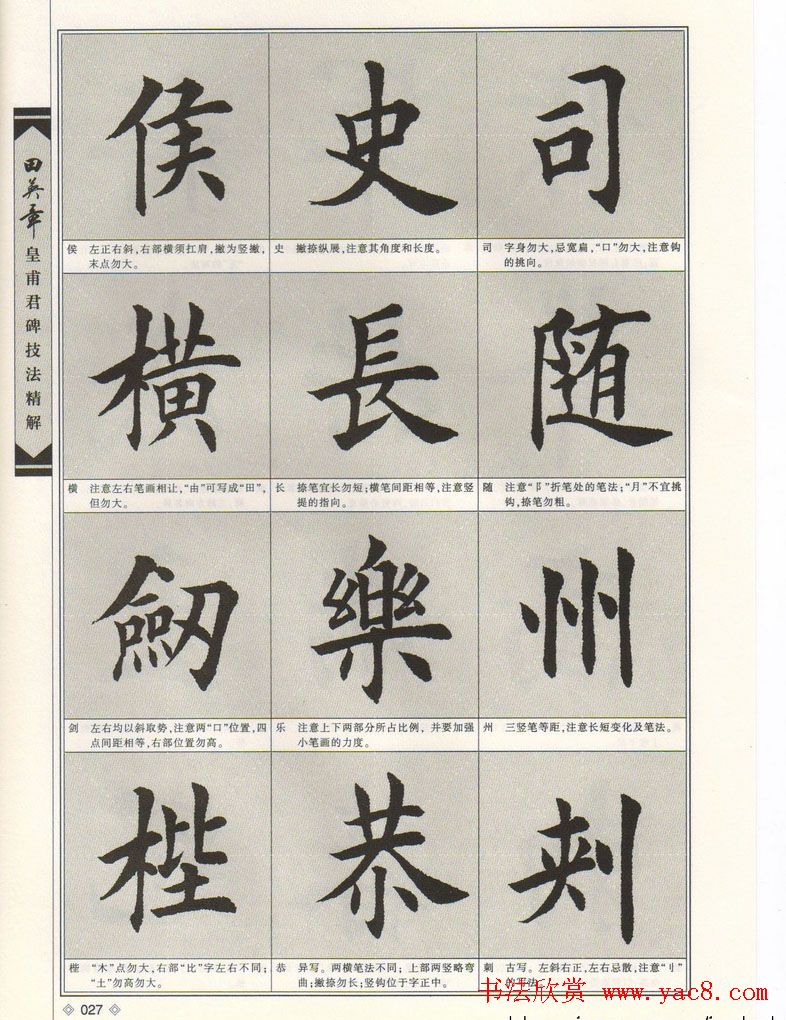 侯 史 司
侯 左正右斜，右部横须扛肩，撇为竖撇，
末点勿大。
史 撇捺纵展，注意其角度和长度。
司 字身勿大，忌宽扁，“口”勿大，注意钩
的挑向。
横 長 随
横 注意左右笔画相让，“由”可写成“田”，
但勿大。
长 捺笔宜长勿短；横笔间距相等，注意竖
提的指向。
随 注意“阝”折笔处的笔法；“月”不宜挑
钩，捺笔勿粗。
劒 樂 州
剑 左右均以斜取势，注意两“口”位置，四
点间距相等，右部位置勿高。
乐 注意上下两部分所占比例，并要加强
小笔画的力度。
州 三竖笔等距，注意长短变化及笔法。
梐 恭 刾
梐 “木”点勿大，右部“比”字左右不同；
“土”勿高勿大。
恭 异写。两横笔法不同；上部两竖略弯
曲；撇捺勿长；竖钩位于字正中。
刺 古写。左斜右正，左右忌散，注意“刂”
的写法。
田英章
皇甫君碑技法精解
027
书法欣赏 www.yac8.com